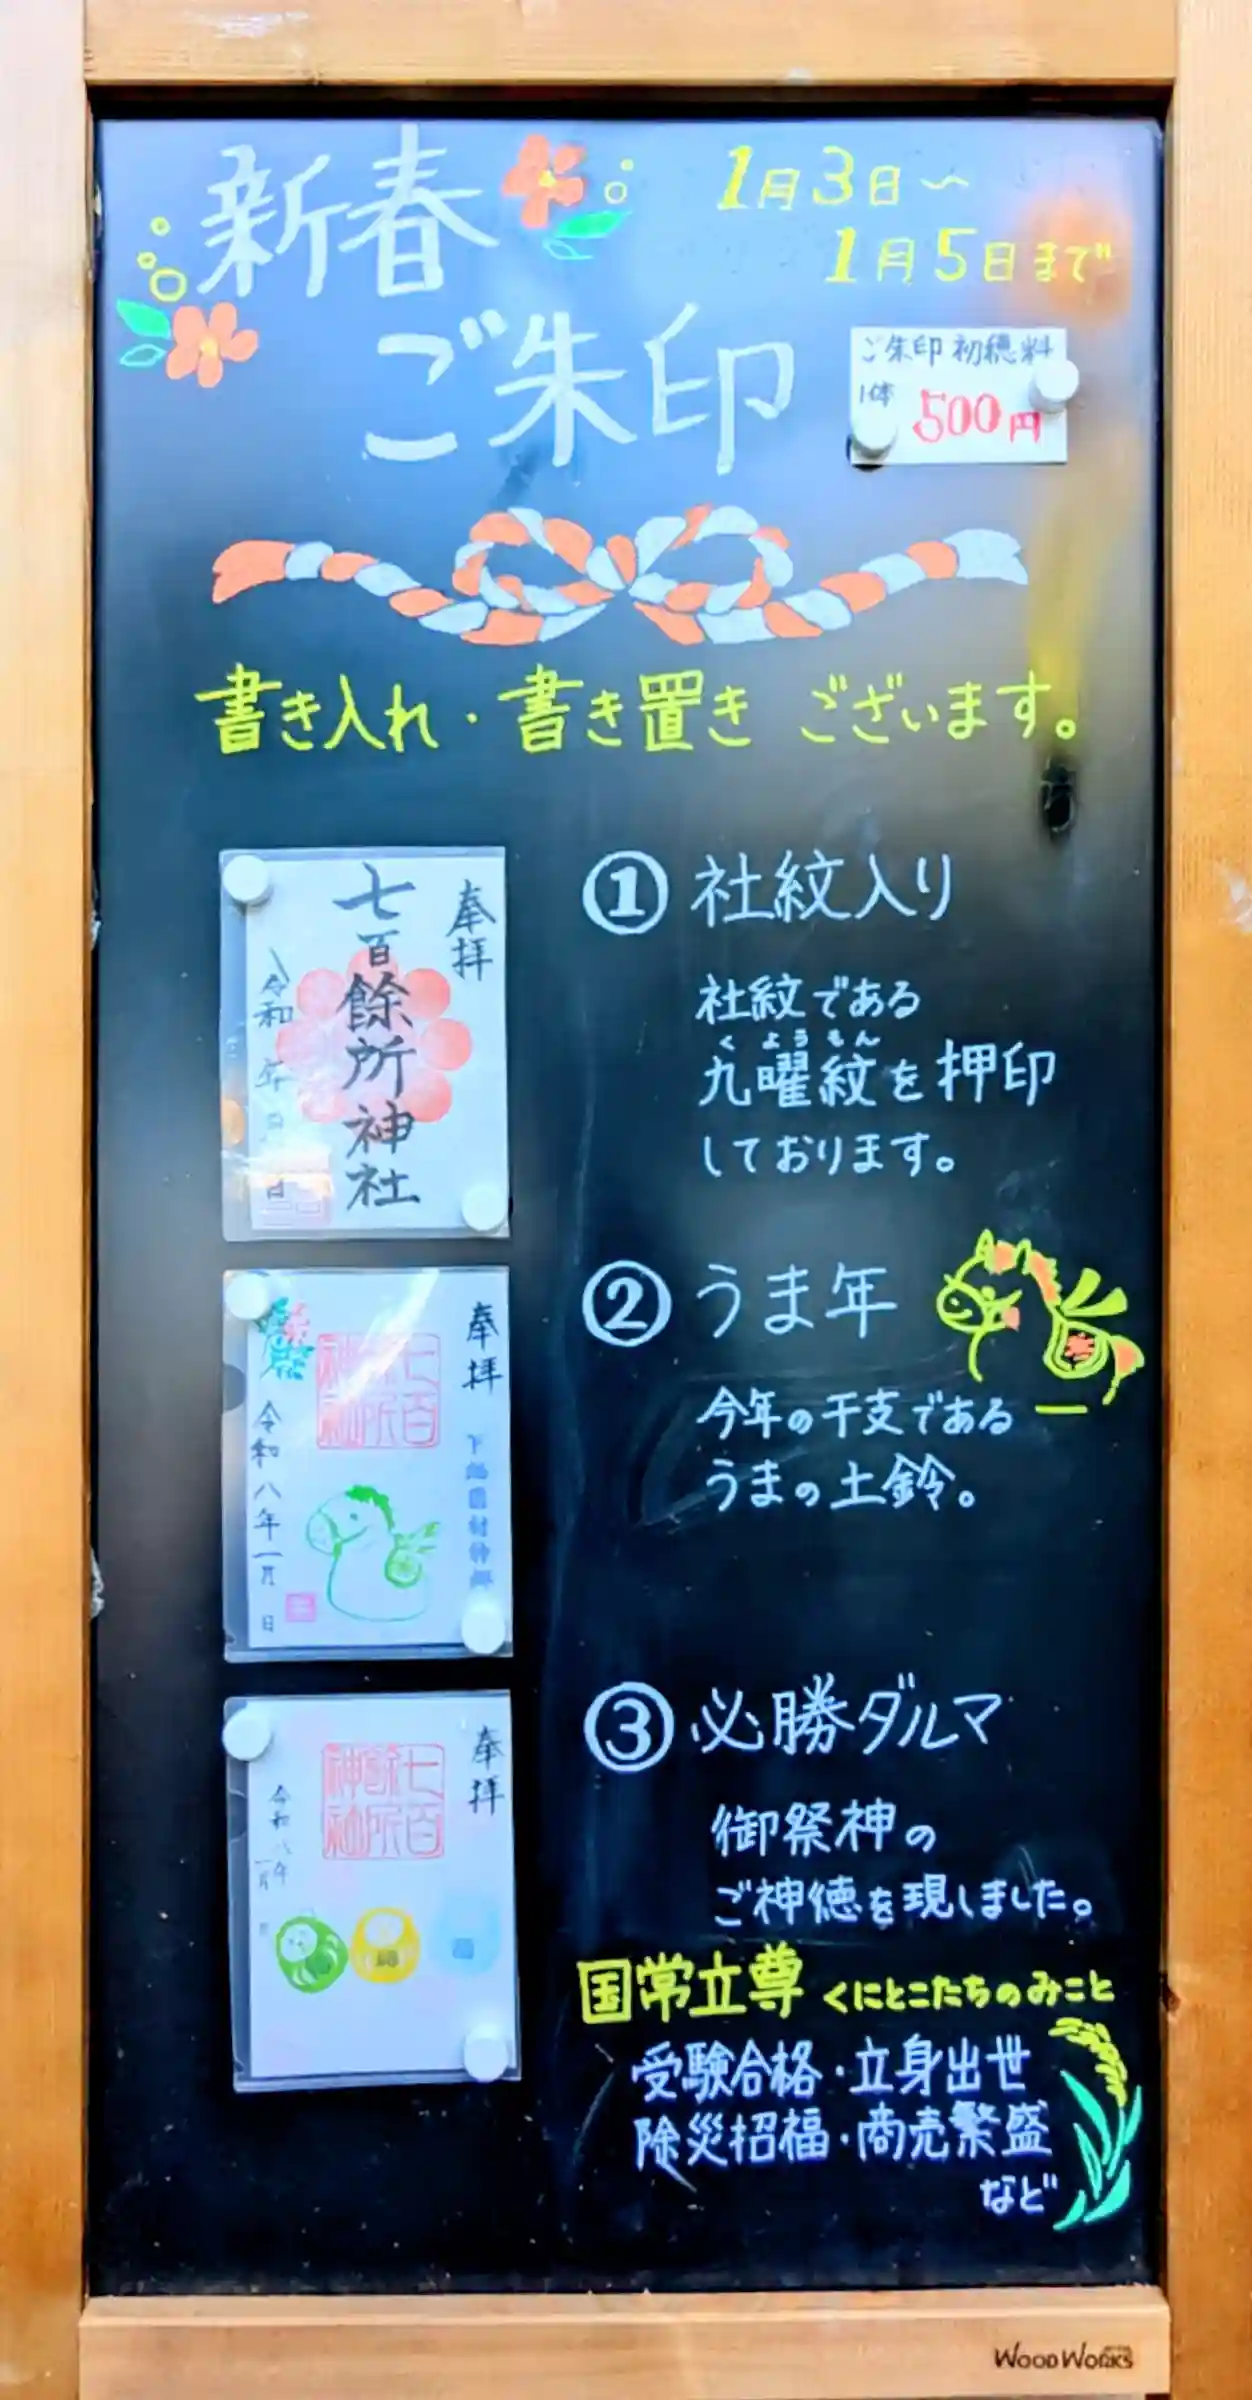 新春
ご朱印
1月3日〜
1月5日まで
ご朱印 初穂料
1体 500円
書き入れ・書き置き ございます。
奉拝
七百餘所神社
令和 年 月 日
① 社紋入り
社紋である
くようもん
九曜紋を押印
しております。
奉拝
七百餘所神社
令和八年一月 日
② うま年
今年の干支である
うまの土鈴。
奉拝
七百餘所神社
令和八年一月 日
③ 必勝ダルマ
御祭神の
ご神徳を現しました。
国常立尊 くにとこたちのみこと
受験合格・立身出世
除災招福・商売繁盛
など
WOODWORKS